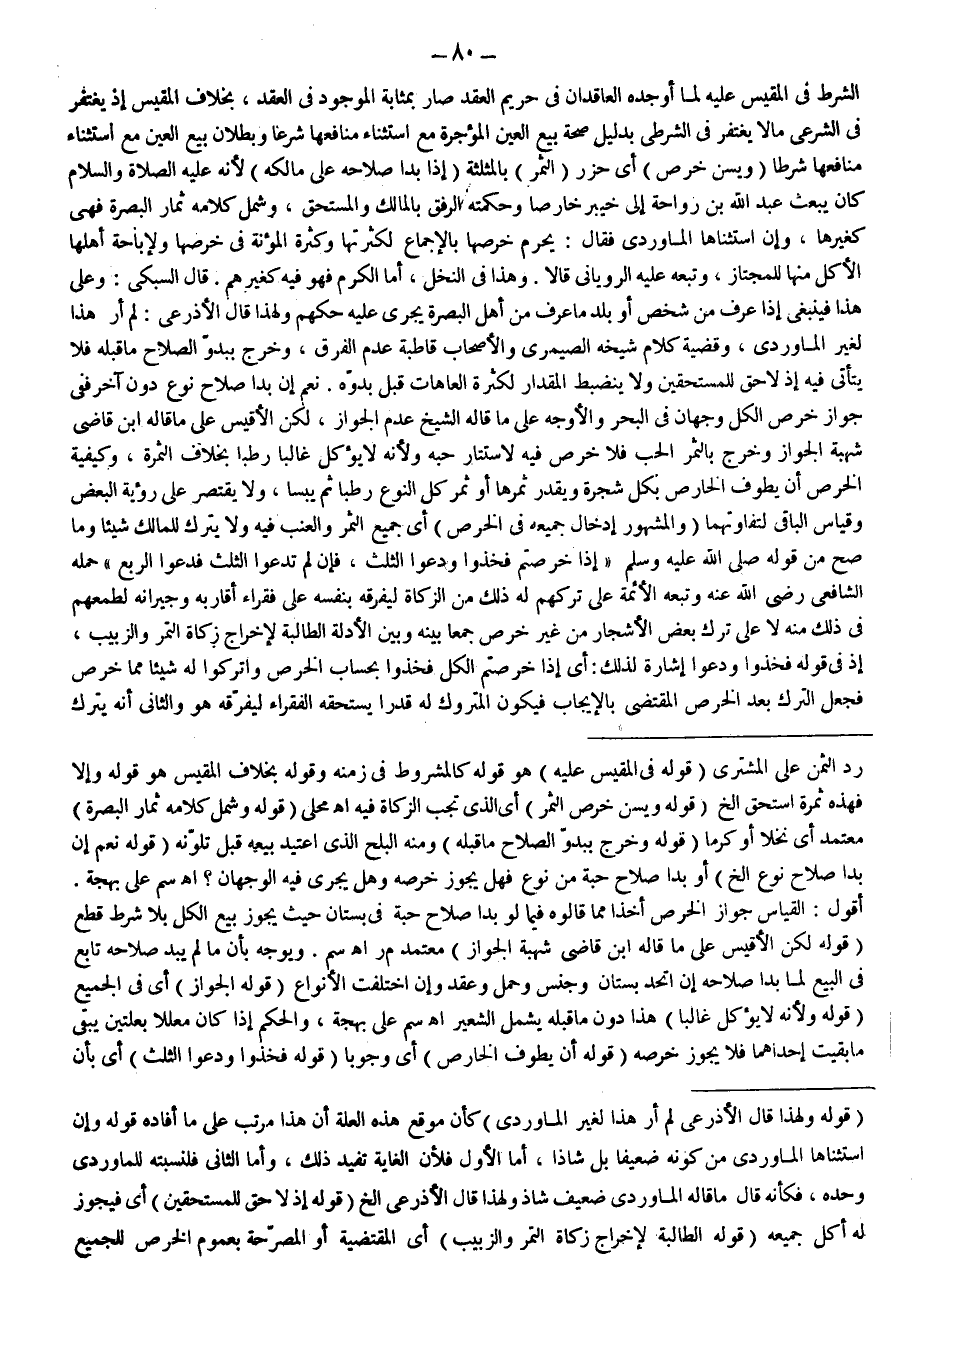 – ٨٠ –
الشرط فى المقيس عليه لمـا أوجده العاقدان فى حريم العقد صار بمثابة الموجود فى العقد ، بخلاف المقيس إذ يغتفر
فى الشرعى مالا يغتفر فى الشرطى بدليل صحة بيع العين المؤجرة مع استثناء منافعها شرعا وبطلان بيع العين مع استثناء
منافعها شرطا ( ويسن خرص ) أى حزر ( الثمر ) بالمثلثة ( إذا بدا صلاحه على مالكه ) لأنه عليه الصلاة والسلام
كان يبعث عبد الله بن رواحة إلى خيبر خارصا وحكمته الرفق بالمالك والمستحق ، وشمل كلامه ثمار البصرة فهى
كغيرها ، وإن استثناها المـاوردى فقال : يحرم خرصها بالإجماع لكثرتها وكثرة المؤنة فى خرصها ولإباحة أهلها
الأكل منها للمجتاز ، وتبعه عليه الرويانى قالا . وهذا فى النخل ، أما الكرم فهو فيه كغيرهم . قال السبكى : وعلى
هذا فينبغى إذا عرف من شخص أو بلد ماعرف من أهل البصرة يجرى عليه حكمهم ولهذا قال الأذرعى : لم أر هذا
لغير المـاوردى ، وقضية كلام شيخه الصيمرى والأصحاب قاطبة عدم الفرق ، وخرج ببدوّ الصلاح ماقبله فلا
يتأتى فيه إذ لاحق للمستحقين ولا ينضبط المقدار لكثرة العاهات قبل بدوّه . نعم إن بدا صلاح نوع دون آخر ففى
جواز خرص الكل وجهان فى البحر والأوجه على ما قاله الشيخ عدم الجواز ، لكن الأقيس على ماقاله ابن قاضى
شهبة الجواز وخرج بالثمر الحب فلا خرص فيه لاستتار حبه ولأنه لايؤكل غالبا رطبا بخلاف الثمرة ، وكيفية
الخرص أن يطوف الخارص بكل شجرة ويقدر ثمرها أو ثمر كل النوع رطبا ثم يبسا ، ولا يقتصر على رؤية البعض
وقياس الباقى لتفاوتهما ( والمشهور إدخال جميعه فى الخرص ) أى جميع الثمر والعنب فيه ولا يترك للمالك شيئا وما
صح من قوله صلى الله عليه وسلم « إذا خرصتم فخذوا ودعوا الثلث ، فإن لم تدعوا الثلث فدعوا الربع » حمله
الشافعى رضى الله عنه وتبعه الأئمة على تركهم له ذلك من الزكاة ليفرقه بنفسه على فقراء أقاربه وجيرانه لطمعهم
فى ذلك منه لا على ترك بعض الأشجار من غير خرص جمعا بينه وبين الأدلة الطالبة لإخراج زكاة التمر والزبيب ،
إذ فى قوله فخذوا ودعوا إشارة لذلك: أى إذا خرصتم الكل فخذوا بحساب الخرص واتركوا له شيئا مما خرص
فجعل الترك بعد الخرص المقتضى بالإيجاب فيكون المتروك له قدرا يستحقه الفقراء ليفرّقه هو والثانى أنه يترك
رد الثمن على المشترى ( قوله فى المقيس عليه ) هو قوله كالمشروط فى زمنه وقوله بخلاف المقيس هو قوله وإلا
فهذه ثمرة استحق الخ ( قوله ويسن خرص الثمر ) أى الذى تجب الزكاة فيه اه محلى ( قوله وشمل كلامه ثمار البصرة )
معتمد أى نخلا أو كرما ( قوله وخرج ببدوّ الصلاح ماقبله ) ومنه البلح الذى اعتيد بيعه قبل تلوّنه ( قوله نعم إن
بدا صلاح نوع الخ ) أو بدا صلاح حبة من نوع فهل يجوز خرصه وهل يجرى فيه الوجهان ؟ اه سم على بهجة .
أقول : القياس جواز الخرص أخذا مما قالوه فيما لو بدا صلاح حبة فى بستان حيث يجوز بيع الكل بلا شرط قطع
( قوله لكن الأقيس على ما قاله ابن قاضى شهبة الجواز ) معتمد م‌ر اه سم . ويوجه بأن ما لم يبد صلاحه تابع
فى البيع لمـا بدا صلاحه إن اتحد بستان وجنس وحمل وعقد وإن اختلفت الأنواع ( قوله الجواز ) أى فى الجميع
( قوله ولأنه لايؤكل غالبا ) هذا دون ماقبله يشمل الشعير اه سم على بهجة ، والحكم إذا كان معللا بعلتين يبقى
مابقيت إحداهما فلا يجوز خرصه ( قوله أن يطوف الخارص ) أى وجوبا ( قوله فخذوا ودعوا الثلث ) أى بأن
( قوله ولهذا قال الأذرعى لم أر هذا لغير المـاوردى ) كأن موقع هذه العلة أن هذا مرتب على ما أفاده قوله وإن
استثناها المـاوردى من كونه ضعيفا بل شاذا ، أما الأول فلأن الغاية تفيد ذلك ، وأما الثانى فلنسبته للماوردى
وحده ، فكأنه قال ماقاله المـاوردى ضعيف شاذ ولهذا قال الأذرعى الخ ( قوله إذ لا حق للمستحقين ) أى فيجوز
له أكل جميعه ( قوله الطالبة لإخراج زكاة التمر والزبيب ) أى المقتضية أو المصرّحة بعموم الخرص للجميع